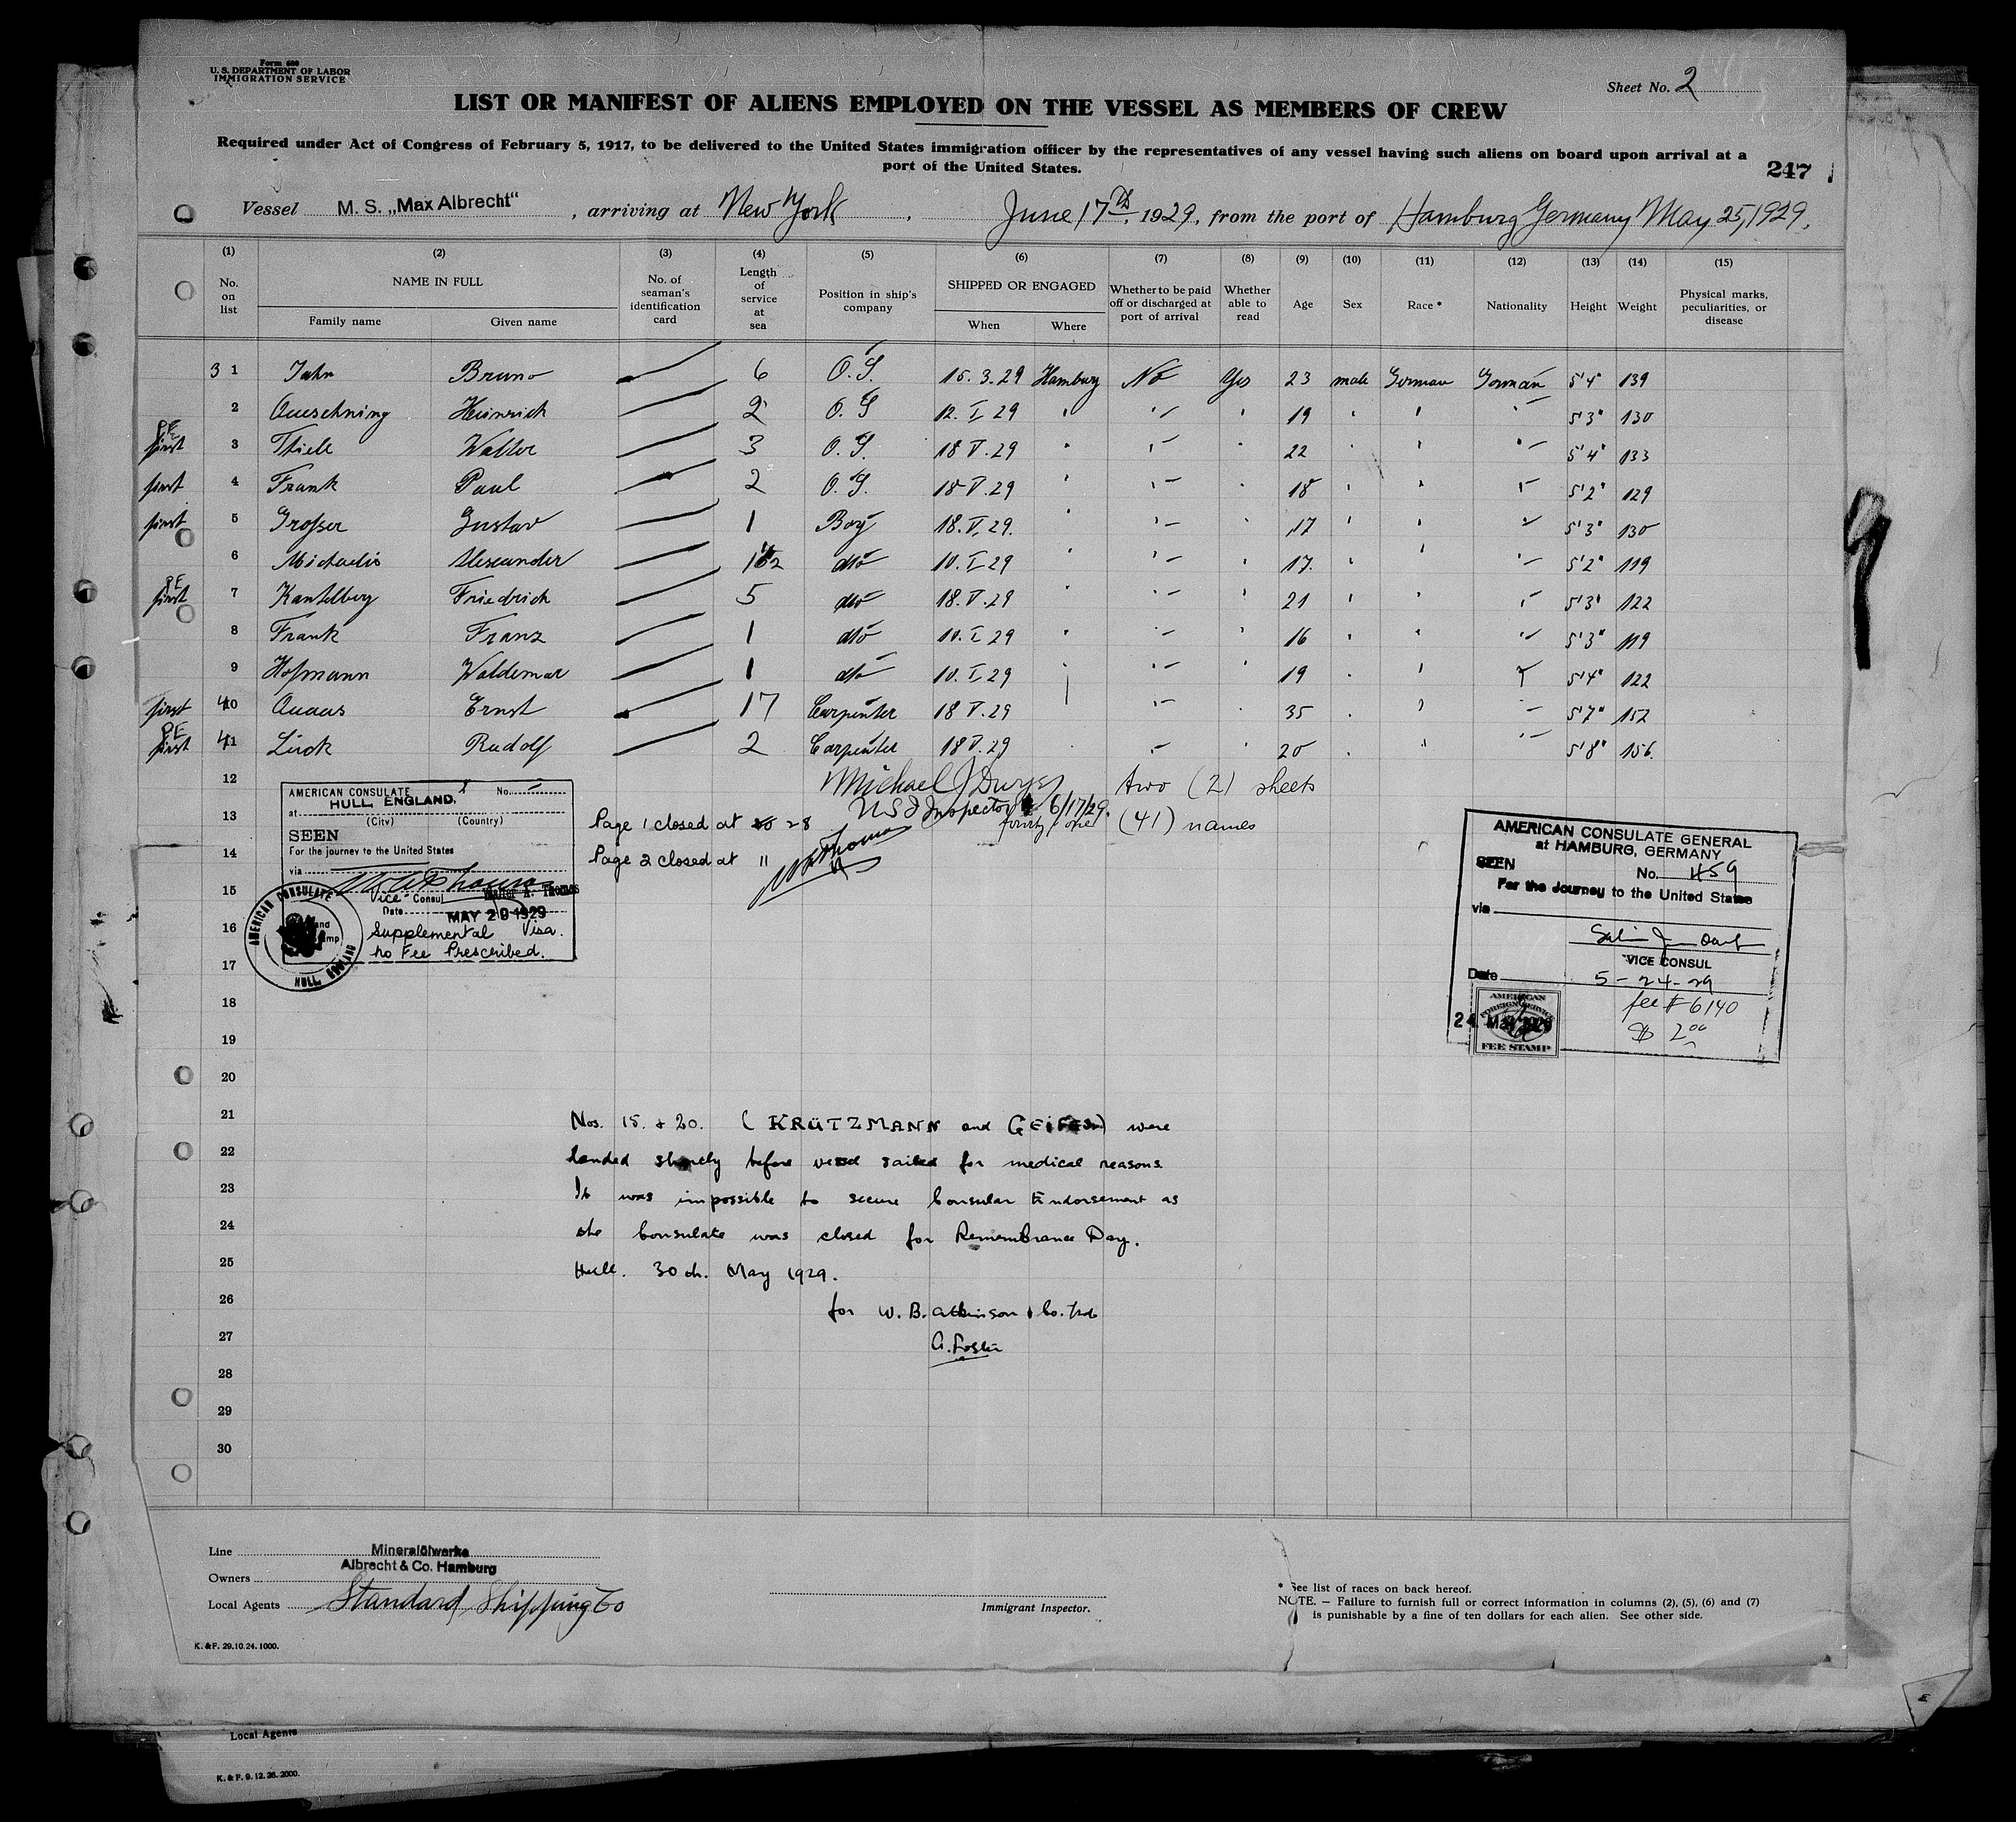 Form 680
U. S. DEPARTMENT OF LABOR
IMMIGRATION SERVICE
Sheet No. 2
LIST OR MANIFEST OF ALIENS EMPLOYED ON THE VESSEL AS MEMBERS OF CREW
Required under Act of Congress of February 5, 1917, to be delivered to the United States immigration officer by the representatives of any vessel having such aliens on board upon arrival at a
port of the United States.
247
Vessel M. S. „Max Albrecht“, arriving at New York, June 17th, 1929, from the port of Hamburg Germany May 25, 1929.
(1) (2) (3) (4) (5) (6) (7) (8) (9) (10) (11) (12) (13) (14) (15)
No. on list NAME IN FULL Family name Given name No. of seaman's identification card Length of service at sea Position in ship's company SHIPPED OR ENGAGED When Where Whether to be paid off or discharged at port of arrival Whether able to read Age Sex Race * Nationality Height Weight Physical marks, peculiarities, or disease
3 1 Jahn Bruno 6 O. S. 15. 3. 29 Hamburg No Yes 23 male German German 5'4" 139
2 Queschning Heinrich 2 O. S 12. I. 29 " " " 19 " " " 5'3" 130
PE first 3 Thiele Walter 3 O. S. 18 V. 29 " " " 22 " " " 5'4" 133
first 4 Frank Paul 2 O. S. 18 V. 29 " " " 18 " " " 5'2" 129
first 5 Grosser Gustav 1 Boy 18. V. 29. " " " 17 " " " 5'3" 130
6 Michaelis Alexander dto 10. I. 29 " " " 17. " " " 5'2" 119
PE first 7 Kantelberg Friedrich 5 dto 18. V. 29 " " " 21 " " " 5'3" 122
8 Frank Franz 1 dto 10. I. 29 " " " 16 " " " 5'3" 119
9 Hofmann Waldemar 1 dto 10. I. 29 " " " 19 " " " 5'4" 122
first 40 10 Quaas Ernst 17 Carpenter 18 V. 29 " " 35 " " " 5'7" 152
PE first 41 11 Lück Rudolf 2 Carpenter 18 V. 29 " " " 20 " " " 5'8" 156.
12
13
14
15
16
17
18
19
20
21
22
23
24
25
26
27
28
29
30
Michael J Dwyer two (2) sheets
U S I Inspector 6/17/29.
fourty one (41) names
Page 1 closed at 28
Page 2 closed at 11
AMERICAN CONSULATE No.
at HULL, ENGLAND.
(City) (Country)
SEEN
For the journey to the United States
via
Walter A. Thomas
Vice Consul
Date MAY 29 1929
Supplemental Visa.
no Fee Prescribed.
AMERICAN CONSULATE
HULL, ENGLAND
AMERICAN CONSULATE GENERAL
at HAMBURG, GERMANY
SEEN
No. 459
For the Journey to the United States
via
VICE CONSUL
Date 5-24-29
fee # 6140
$ 2.00
AMERICAN
FOREIGN SERVICE
24 MAY 1929
FEE STAMP
Nos. 15. & 20. (KRÜTZMANN and GEIFES) were
landed shortly before vessel sailed for medical reasons.
It was impossible to secure Consular Endorsement as
the Consulate was closed for Remembrance Day.
Hull. 30th. May 1929.
for W. B. Atkinson & Co. Ltd
G. Foster
Line Mineralölwerke
Owners Albrecht & Co. Hamburg
Local Agents Standard Shipping Co
Immigrant Inspector.
* See list of races on back hereof.
NOTE. — Failure to furnish full or correct information in columns (2), (5), (6) and (7)
is punishable by a fine of ten dollars for each alien. See other side.
K. & F. 29.10.24. 1000.
Local Agents
K. & F. 9. 12. 26. 2000.